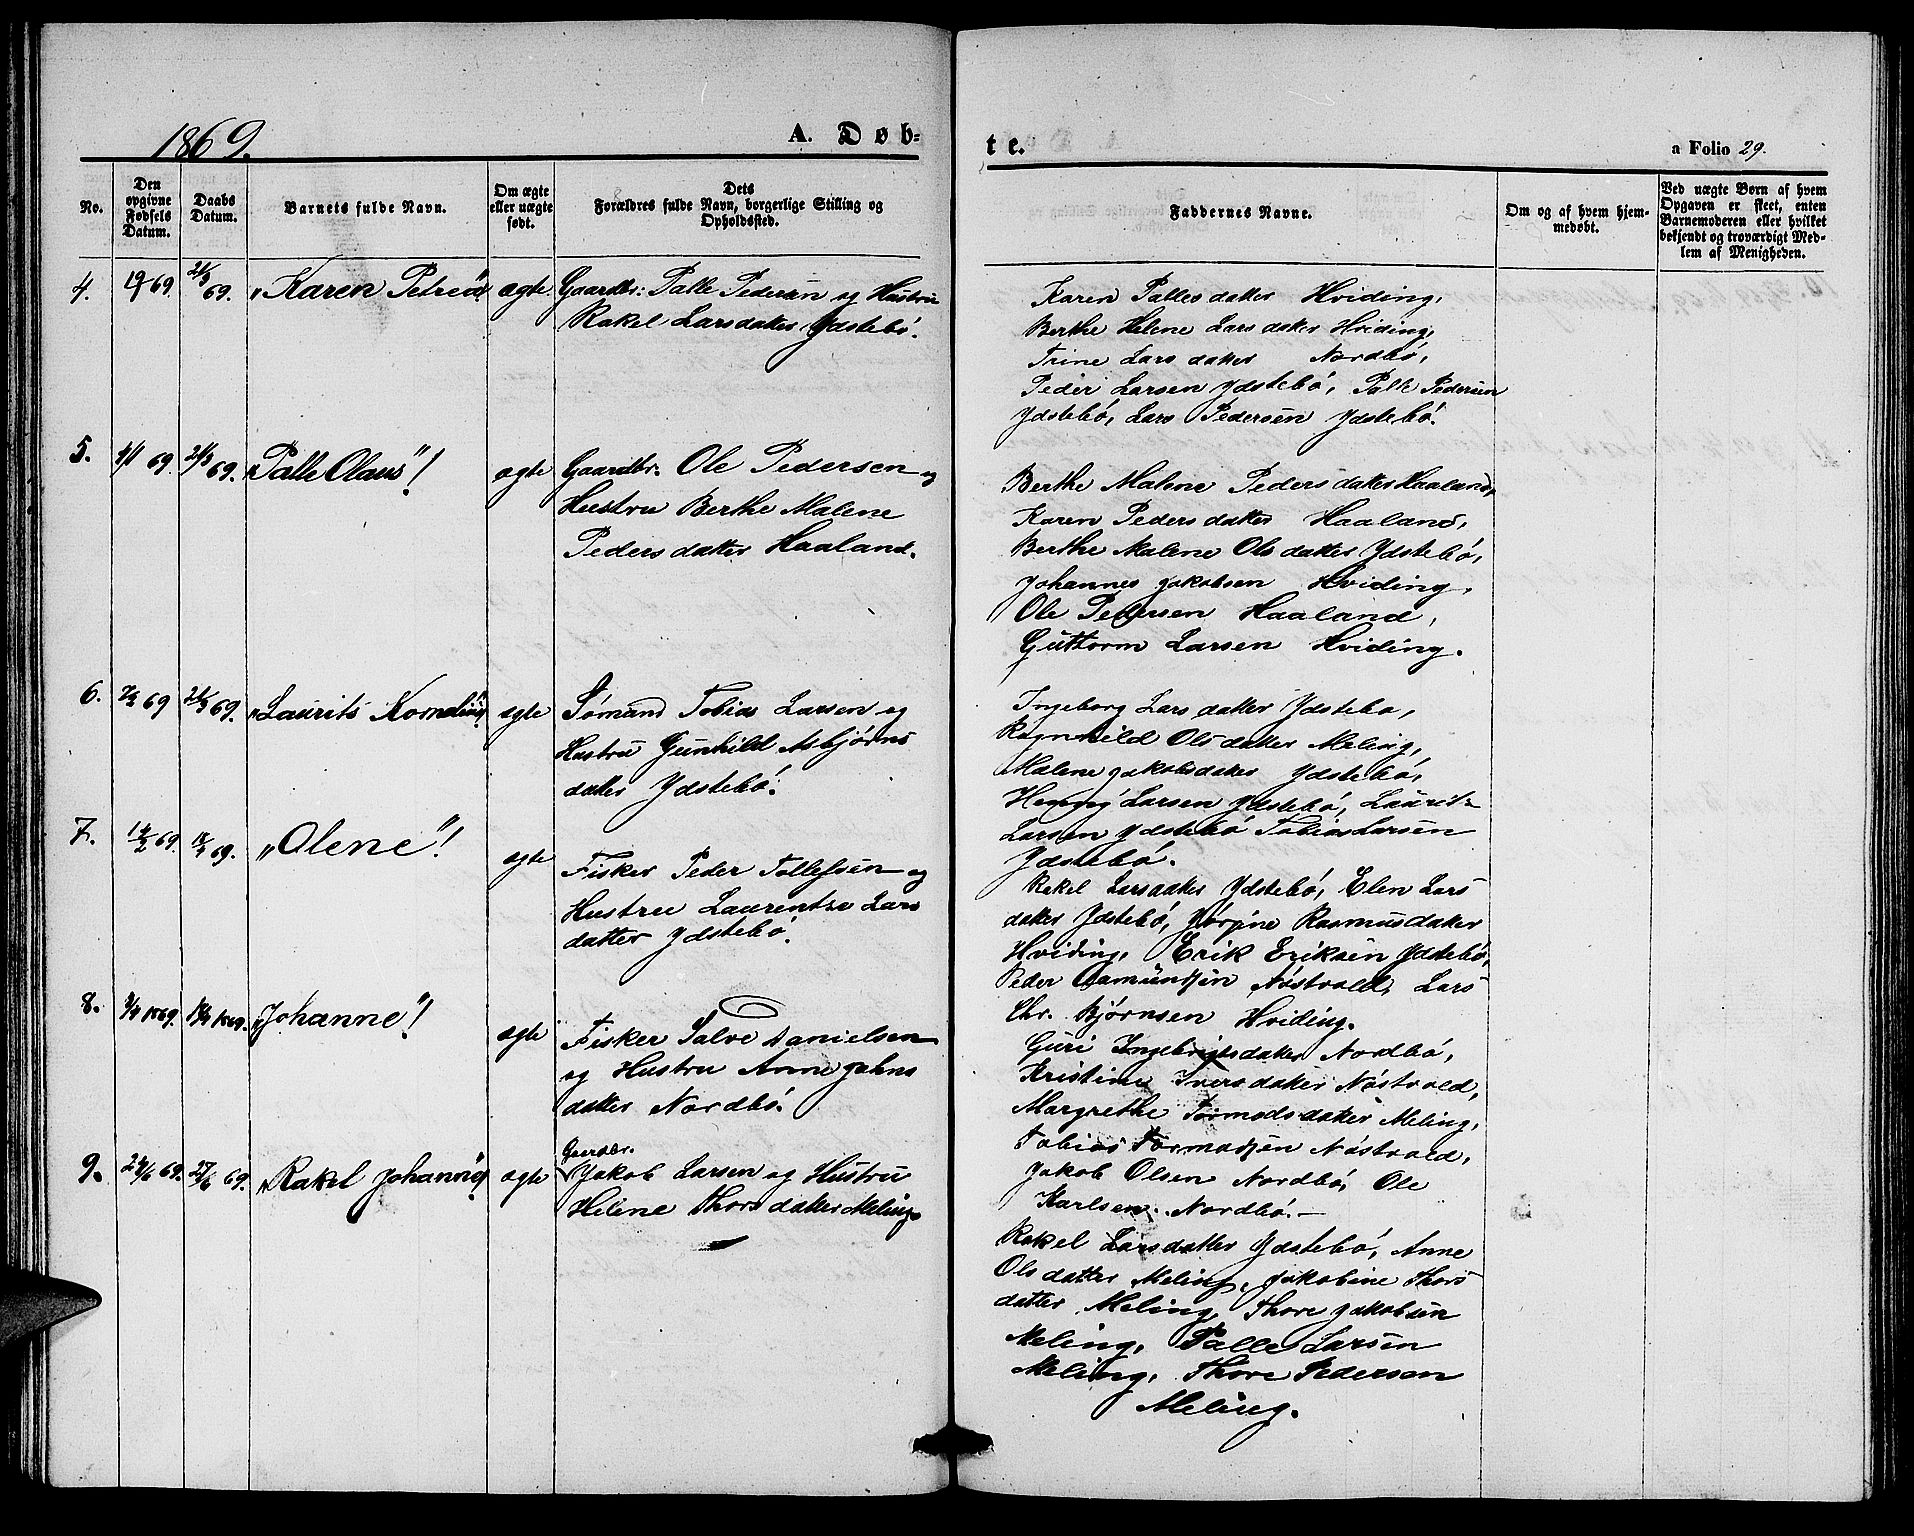 1869.
A. Døb-
No.
Den opgivne Fødsels Datum.
Daabs Datum.
Barnets fulde Navn.
Om ægte eller uægte født.
Dets Forældres fulde Navn, borgerlige Stilling og Opholdssted.
4. 19/1 69. 21/3 69. „Karen Petrea" ægte Gaardbr: Palle Pedersen og Hustru
Rakel Larsdatter Ydstebó.
5. 69. 21/3 69. „Palle Olaus"! ægte Gaardbr. Ole Pedersen og
Hustru Berthe Malene
Pedersdatter Haaland.
6. 7/2 69 21/3 69. „Laurits Kornelius" ægte Sómand Tobias Larsen og
Hustru Gunhild Asbjørns
datter Ydstebó.
7. 69. 69. „Olene"! ægte Fisker Peder Tollefsen og
Hustru Laurentze Lars
datter Ydstebó.
8. 3/4 1869. 18/4 1869. „Johanne"! ægte Fisker Salve Danielsen
og Hustru Anne Jahns
datter Nordbó.
9. 24/6 69. 27/6 69. „Rakel Johanne" ægte Gaardbr.
Jakob Larsen og Hustru
Helene Thorsdatter Meling.
te.
a Folio 29.
Faddernes Navne.
Om og af hvem hjemmedøbt.
Ved uægte Børn af hvem
Opgaven er skeet, enten
Barnemoderen eller hvilket
bekjendt og troværdigt Med-
lem af Menigheden.
Karen Pallesdatter Hviding,
Berthe Helene Larsdatter Hviding,
Trine Larsdatter Nordbó,
Peder Larsen Ydstebó, Palle Pedersen
Ydstebó, Lars Pedersen Ydstebó.
Berthe Malene Pedersdatter Haaland,
Karen Pedersdatter Haaland,
Berthe Malene Olsdatter Ydstebó,
Johannes Jakobsen Hviding,
Ole Pedersen Haaland,
Guttorm Larsen Hviding.
Ingeborg Larsdatter Ydstebo,
Ragnhild Olsdatter Meling,
Malene Jakobsdatter Ydstebó,
Larsen Ydstebó, Laurits
Larsen Ydstebó Tobias Larsen
Ydstebó.
Rakel Larsdatter Ydstebó, Elen Lars
datter Ydstebó, Jórgine Rasmusdatter
Hviding, Erik Eriksen Ydstebó,
Peder Aamundsen Nóstvold, Lars
Chr. Bjórnsen Hviding.
Guri Ingebrigtsdatter Nordbó,
Kristine Iversdatter Nóstvold,
Margrethe Tormodsdatter Meling,
Tobias Tormodsen Nóstvold,
Jakob Olsen Nordbó, Ole
Karlsen Nordbó.—
Rakel Larsdatter Ydstebó, Anne
Olsdatter Meling, Jakobine Thors
datter Meling, Thore Jakobsen
Meling, Palle Larsen
Meling, Thore Pedersen
Meling.